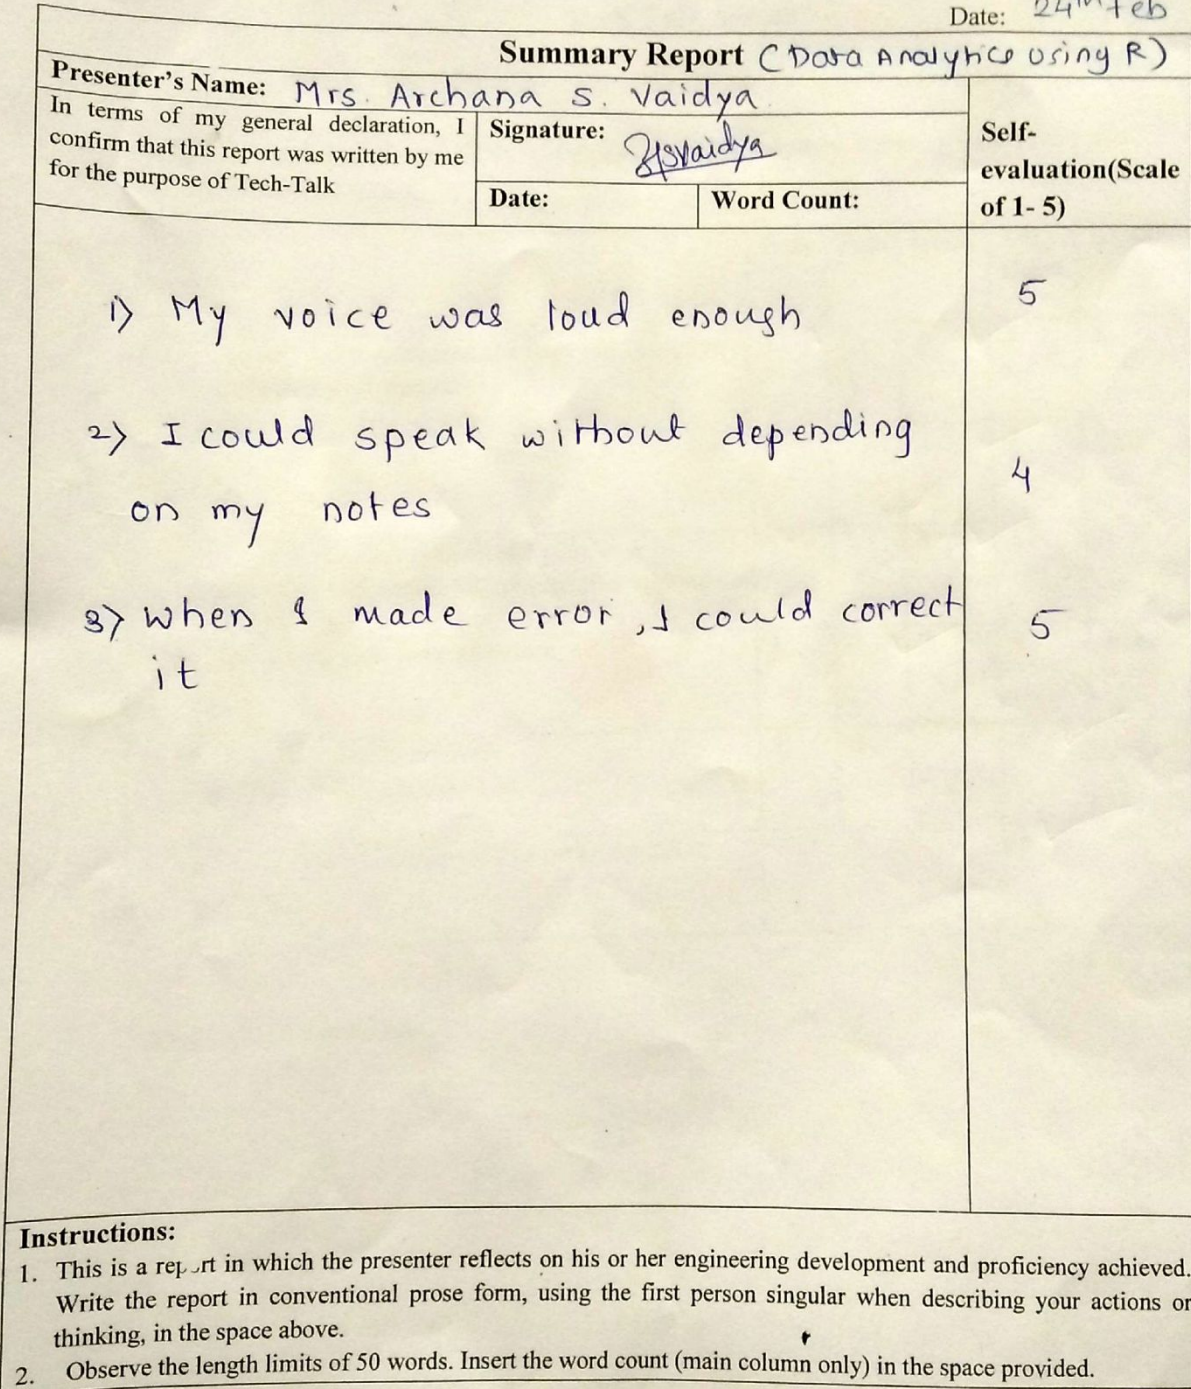 Date: 24th Feb
Summary Report (Data Analytics Using R)
Presenter's Name: Mrs. Archana S. Vaidya
In terms of my general declaration, I
confirm that this report was written by me
for the purpose of Tech-Talk
Signature: Asvaidya
Date: Word Count:
Self-
evaluation(Scale
of 1- 5)
1) My voice was loud enough 5
2) I could speak without depending
on my notes 4
3) when I made error, I could correct 5
it
Instructions:
1. This is a report in which the presenter reflects on his or her engineering development and proficiency achieved.
Write the report in conventional prose form, using the first person singular when describing your actions or
thinking, in the space above.
2. Observe the length limits of 50 words. Insert the word count (main column only) in the space provided.